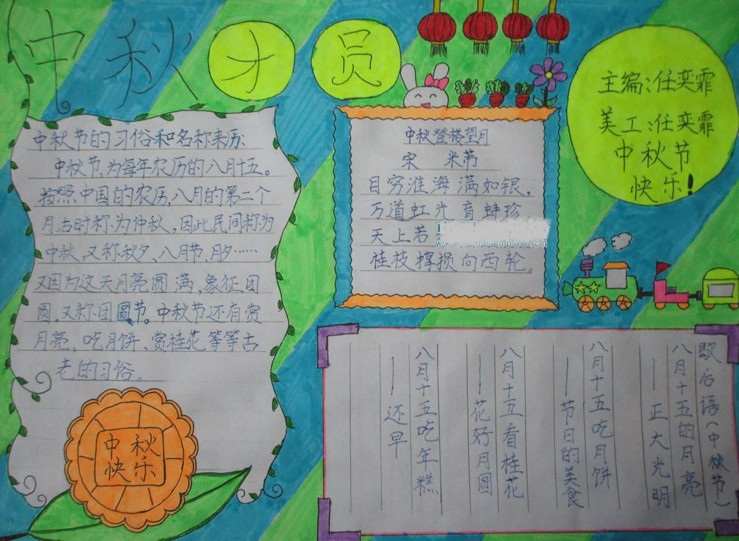 中秋才员
中秋节的习俗和名称来历:
中秋节,为每年农历的八月十五。
按照中国的农历,八月的第二个
月古时称为仲秋,因此民间称为
中秋,又称秋夕、八月节、月夕……
又因为这天月亮圆满,象征团
圆,又称团圆节。中秋节还有赏
月亮、吃月饼、赏桂花等等古
老的习俗。
中秋
快乐
中秋登楼望月
宋 米芾
目穷淮海满如银,
万道虹光育蚌珍
天上若
桂枝撑损向西轮。
主编:任奕霏
美工:任奕霏
中秋节
快乐!
歇后语(中秋节)
八月十五的月亮
——正大光明
八月十五吃月饼
——节日的美食
八月十五看桂花
——花好月圆
八月十五吃年糕
——还早